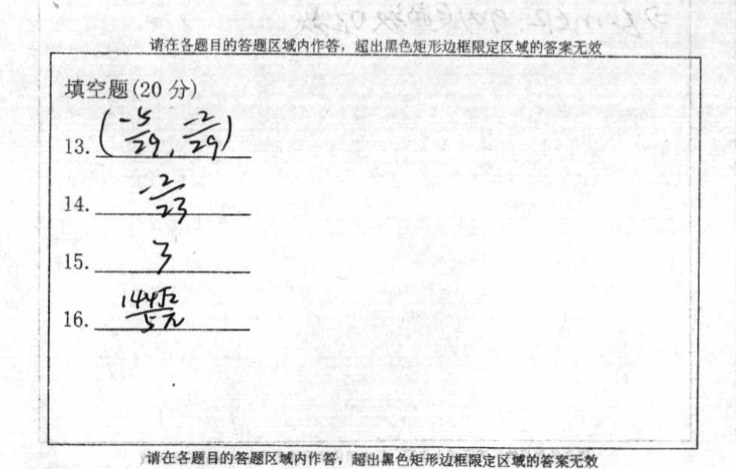 请在各题目的答题区域内作答，超出黑色矩形边框限定区域的答案无效
填空题(20 分)
13. (-5/29, -2/29)
14. -2/23
15. 3
16. 144√2/5π
请在各题目的答题区域内作答，超出黑色矩形边框限定区域的答案无效